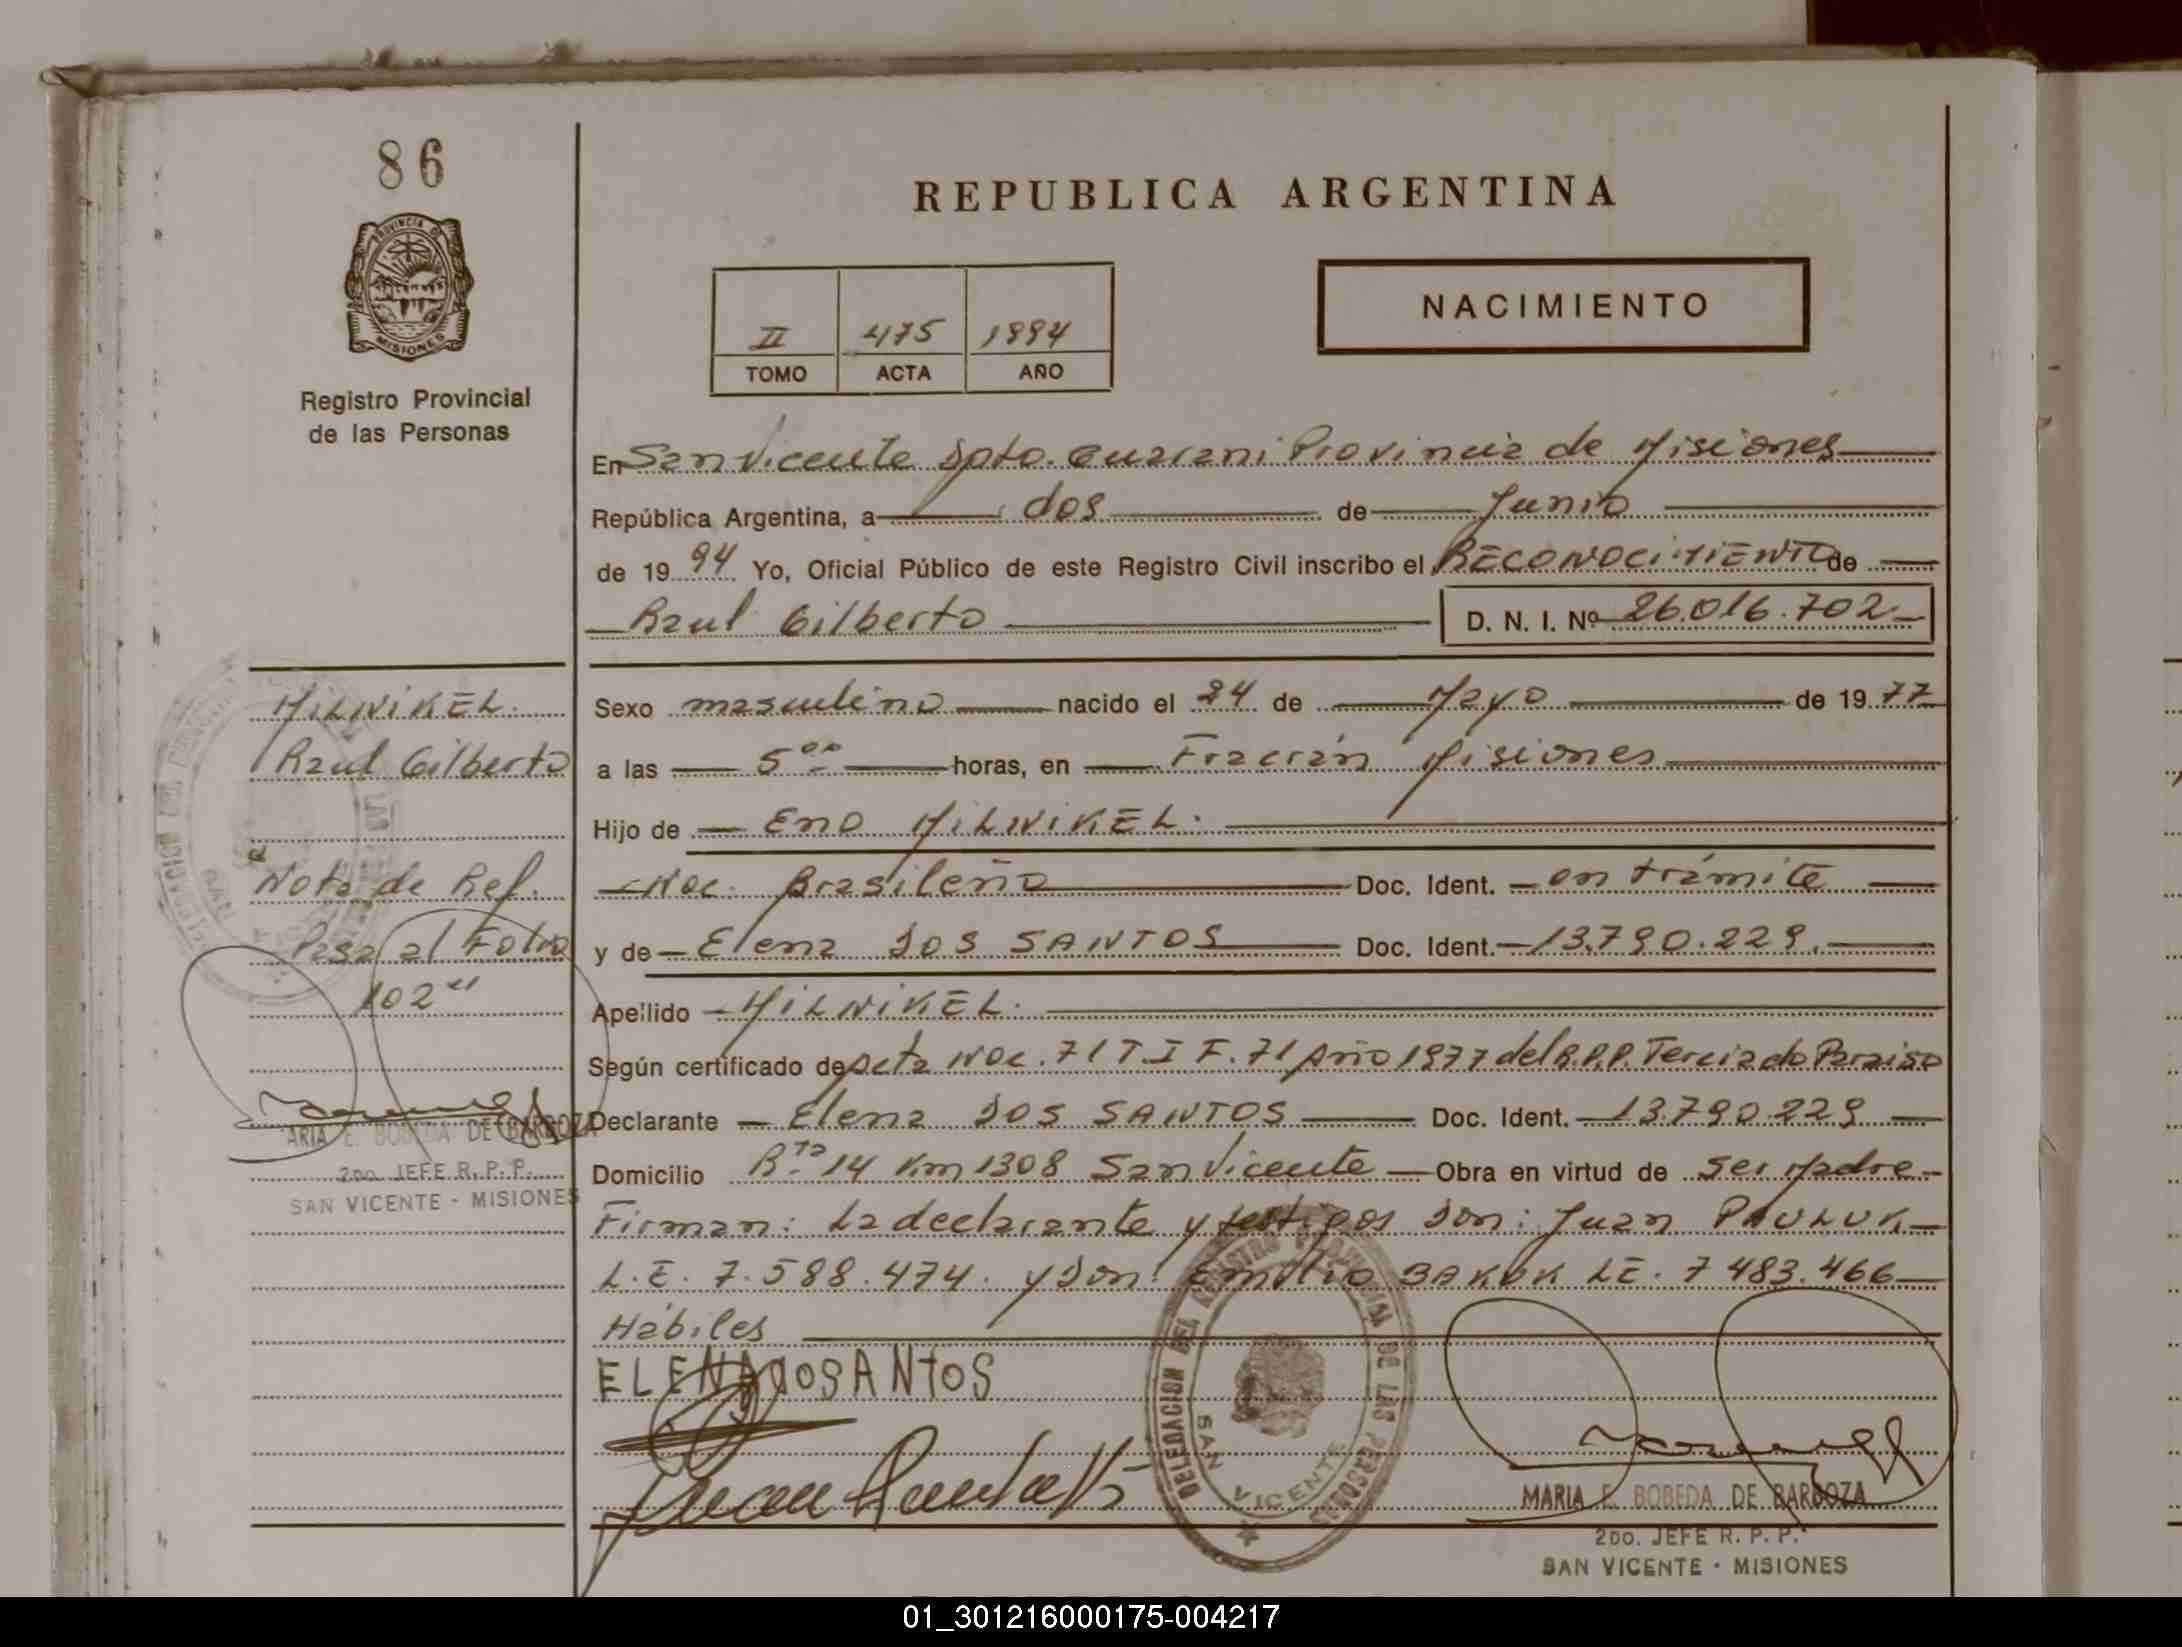 86
PROVINCIA DE
MISIONES
Registro Provincial
de las Personas
REPUBLICA ARGENTINA
NACIMIENTO
II 475 1994
TOMO ACTA AÑO
En San Vicente Dpto. Guarani Provincia de Misiones
República Argentina, a dos de Junio
de 19 94 Yo, Oficial Público de este Registro Civil inscribo el RECONOCIMIENTO de
Raul Gilberto D. N. I. Nº 26.016.702
Sexo masculino nacido el 24 de Mayo de 19 77
a las 5 00 horas, en Fracrán Misiones
Hijo de Eno MILNIKEL.
Nac. Brasileño Doc. Ident. en trámite
y de Elena DOS SANTOS Doc. Ident. 13.790.229.
Apellido MILNIKEL.
Según certificado de Acta Nac. 71 T I F. 71 Año 1977 del R.P.P. Terciado Paraiso
Declarante Elena DOS SANTOS Doc. Ident. 13.790.229
Domicilio Rta 14 Km 1308 San Vicente Obra en virtud de ser Madre
Firman: La declarante y testigos Don: Juan PAULUK
L.E. 7.588.474. y Don: Emilio BAKUK LE. 7 483.466
Hábiles
ELENADOSANTOS
DELEGACION DEL REGISTRO PROVINCIAL DE LAS PERSONAS
SAN VICENTE
MARIA E. BOBEDA DE BARBOZA
2DO. JEFE R. P. P.
SAN VICENTE - MISIONES
MILNIKEL.
Raul Gilberto
Nota de Ref.
Pasa al Folio
102"
ARIA E. BOBEDA DE BARBOZA
2DO. JEFE R. P. P.
SAN VICENTE - MISIONES
01_301216000175-004217